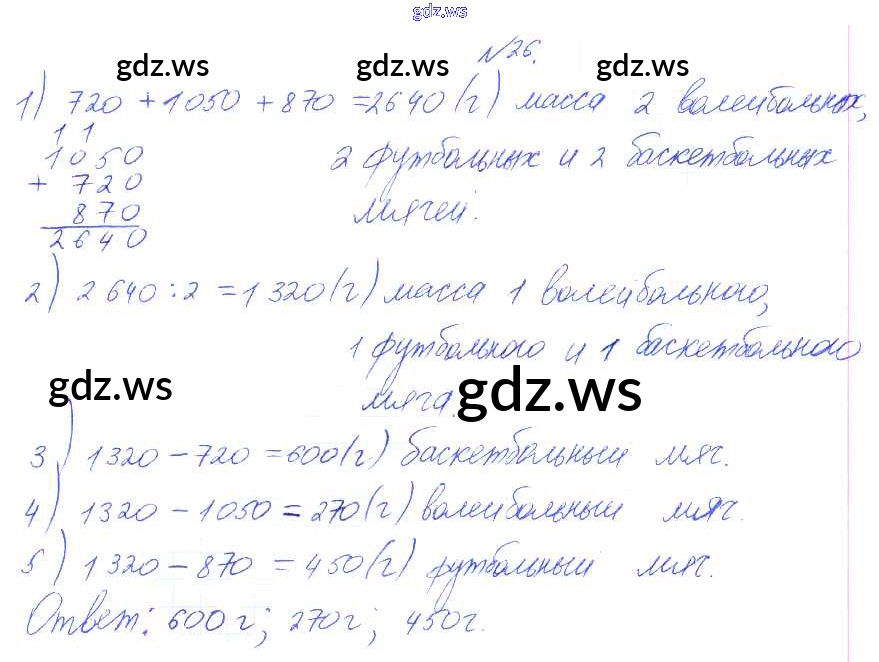 gdz.ws
№26.
gdz.ws gdz.ws gdz.ws
1) 720 + 1050 + 870 = 2640 (г) масса 2 волейбольных,
1 1
1050
+ 720
870
2640
2 футбольных и 2 баскетбольных
мячей.
2) 2640 : 2 = 1320 (г) масса 1 волейбольного,
1 футбольного и 1 баскетбольного
gdz.ws мяча. gdz.ws
3) 1320 - 720 = 600 (г) баскетбольный мяч.
4) 1320 - 1050 = 270 (г) волейбольный мяч.
5) 1320 - 870 = 450 (г) футбольный мяч.
Ответ: 600 г; 270 г; 450 г.